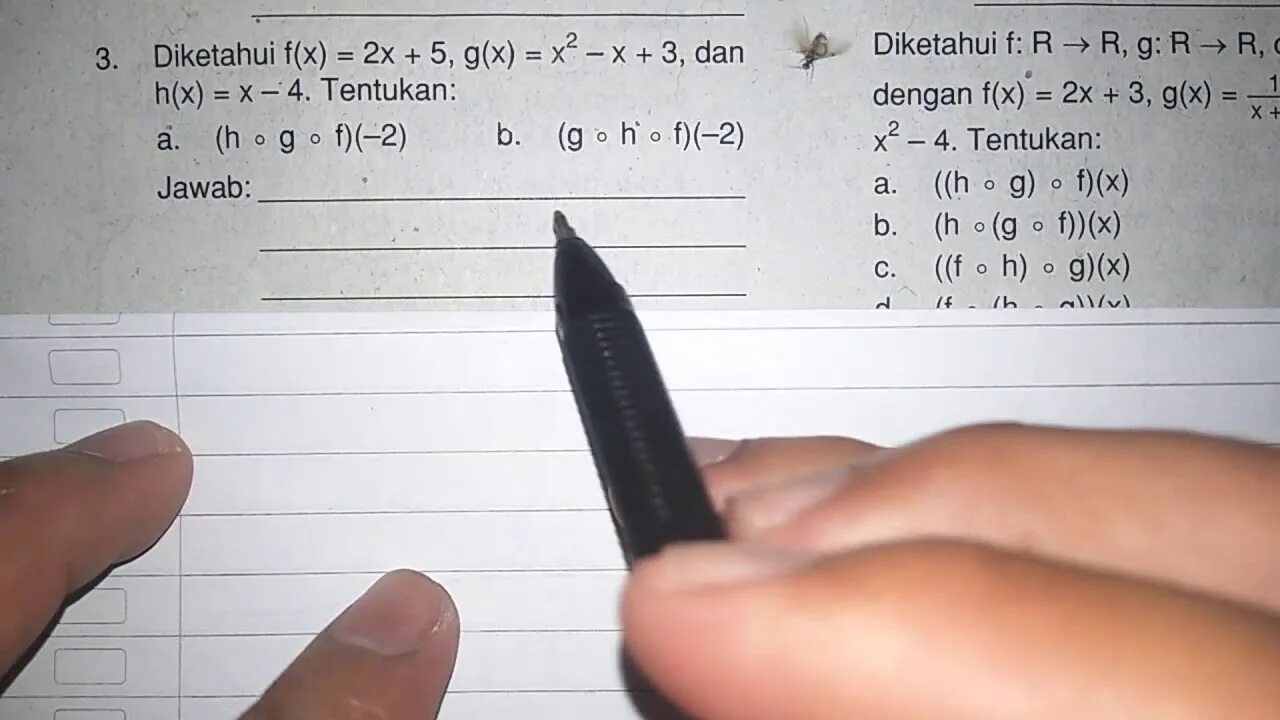 3. Diketahui f(x) = 2x + 5, g(x) = x² – x + 3, dan
h(x) = x – 4. Tentukan:
a. (h ∘ g ∘ f)(–2) b. (g ∘ h ∘ f)(–2)
Jawab:
Diketahui f: R → R, g: R → R,
dengan f(x) = 2x + 3, g(x) =
x² – 4. Tentukan:
a. ((h ∘ g) ∘ f)(x)
b. (h ∘ (g ∘ f))(x)
c. ((f ∘ h) ∘ g)(x)